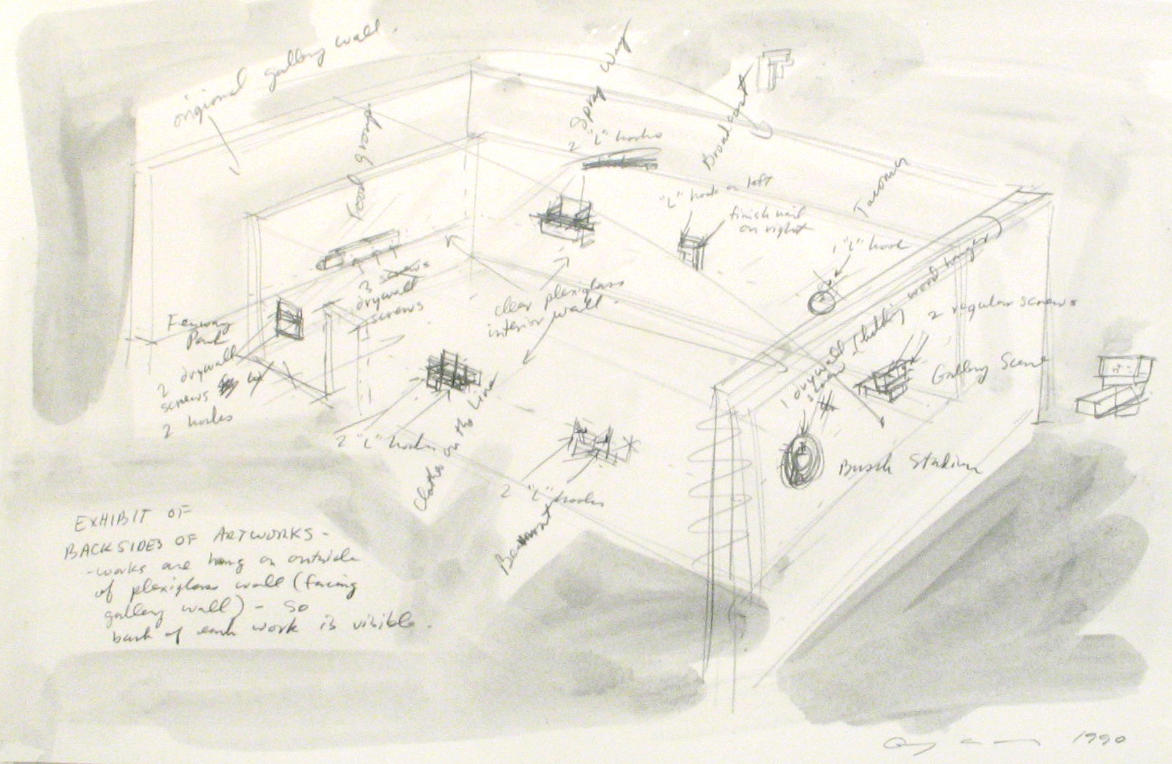 origional gallery wall.
Food group
Spray Way
2 "L" hooks
Broadcast
"L" hook on left
finish nail
on right
1 "L" hook
Fenway
Park
2 drywall
screws
2 hooks
3 screws
drywall
screws
clear plexiglass
interior wall.
2 regular screws
Gallery Scene
1 drywall
screw
Busch Stadium
2 "L" hooks
Clothes on the Line
2 "L" hooks
EXHIBIT OF
BACKSIDES OF ARTWORKS -
- works are hung on outside
of plexiglass wall (facing
gallery wall) - so
back of each work is visible.
1990